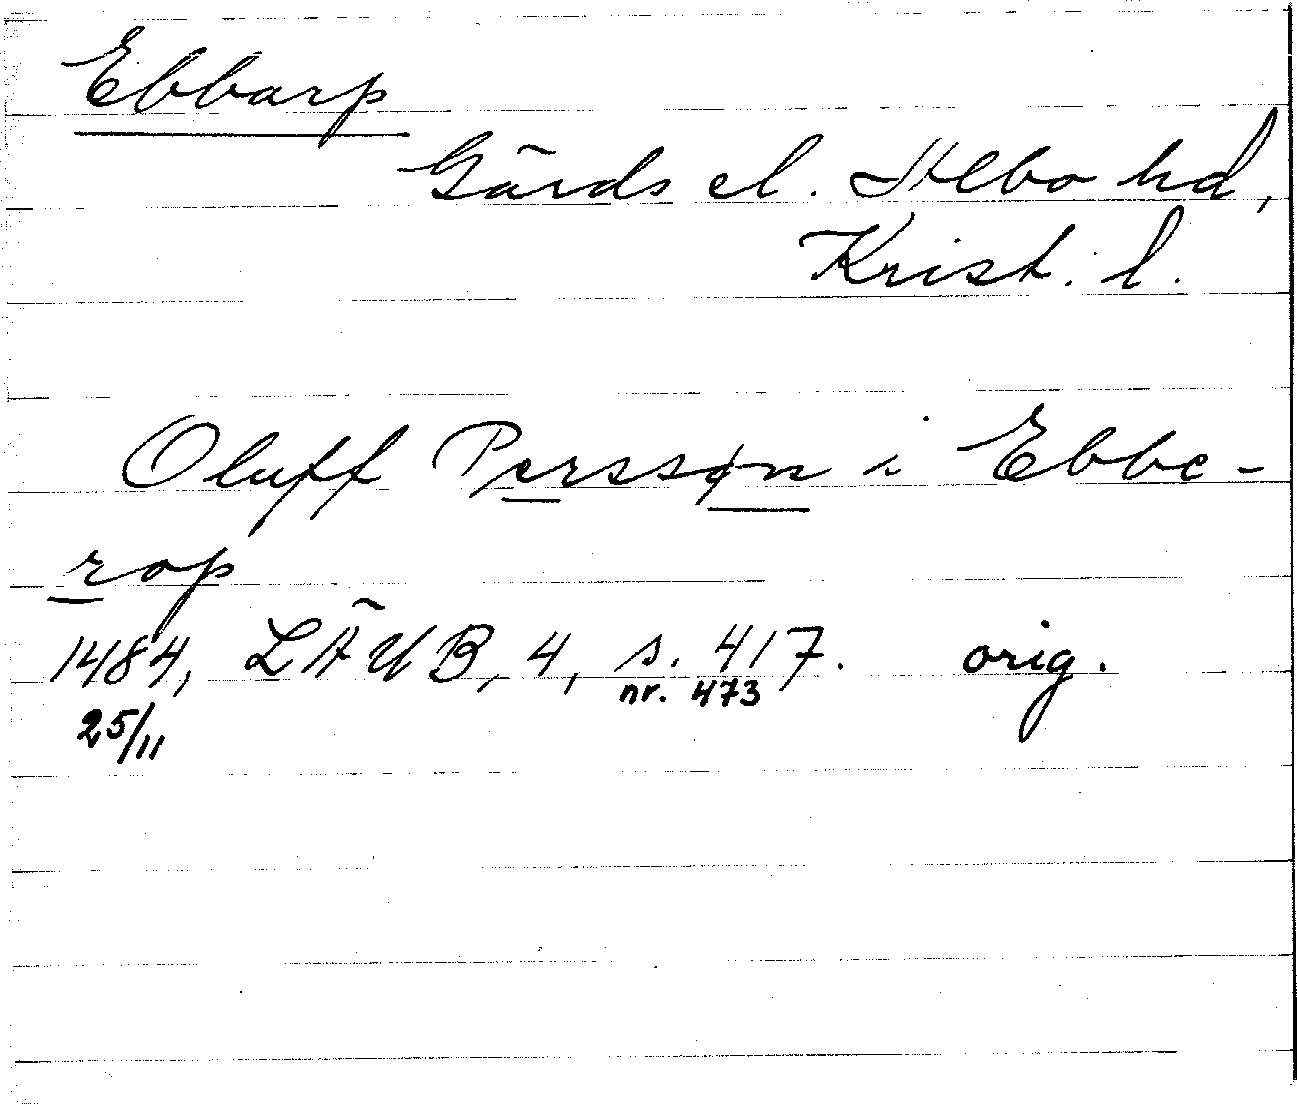 Ebbarp
Gärds el. Albo hd,
Krist. l.
Oluff Perssøn i Ebbe-
rop
1484, LÄUB, 4, s. 417. orig.
25/11 nr. 473